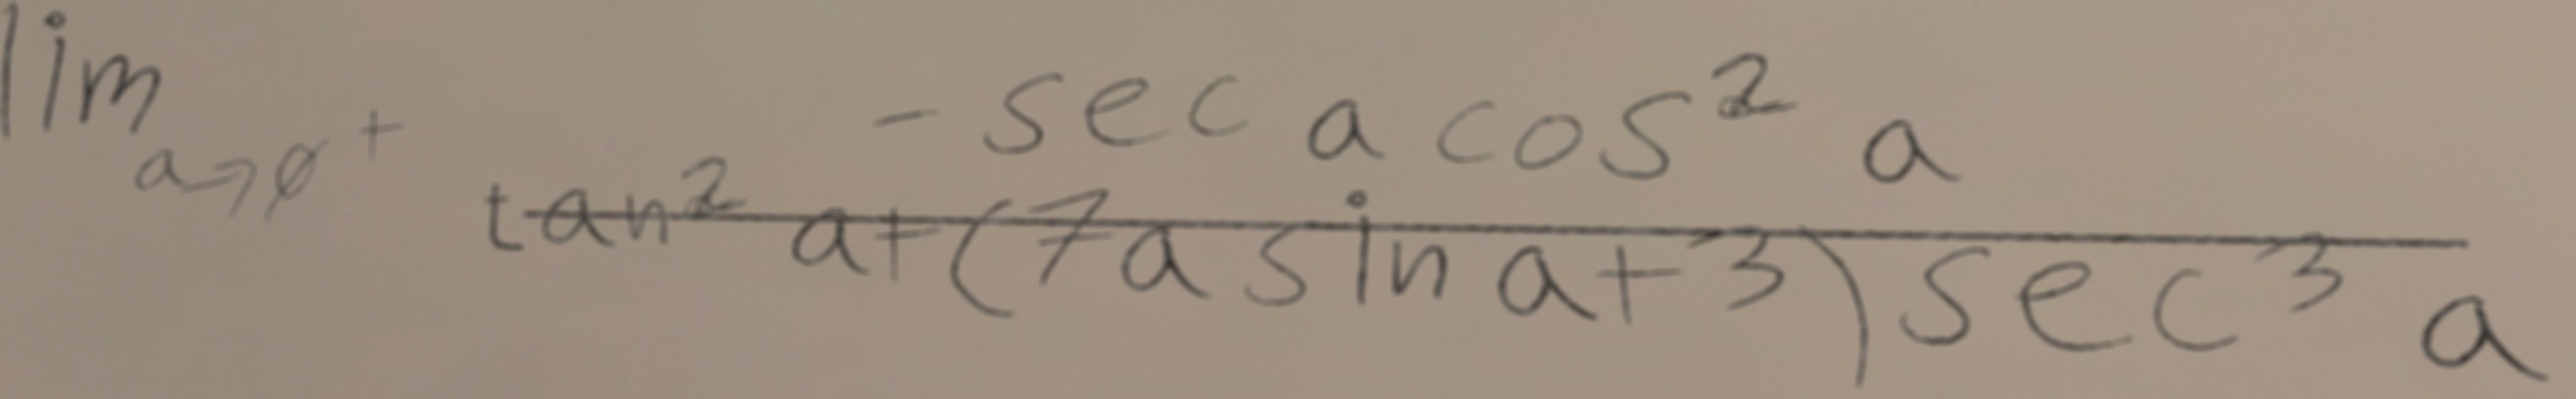 \lim_{a \to 0^+} \frac{-\sec a \cos^2 a}{\tan^2 a + (7a \sin a + 3) \sec^3 a}